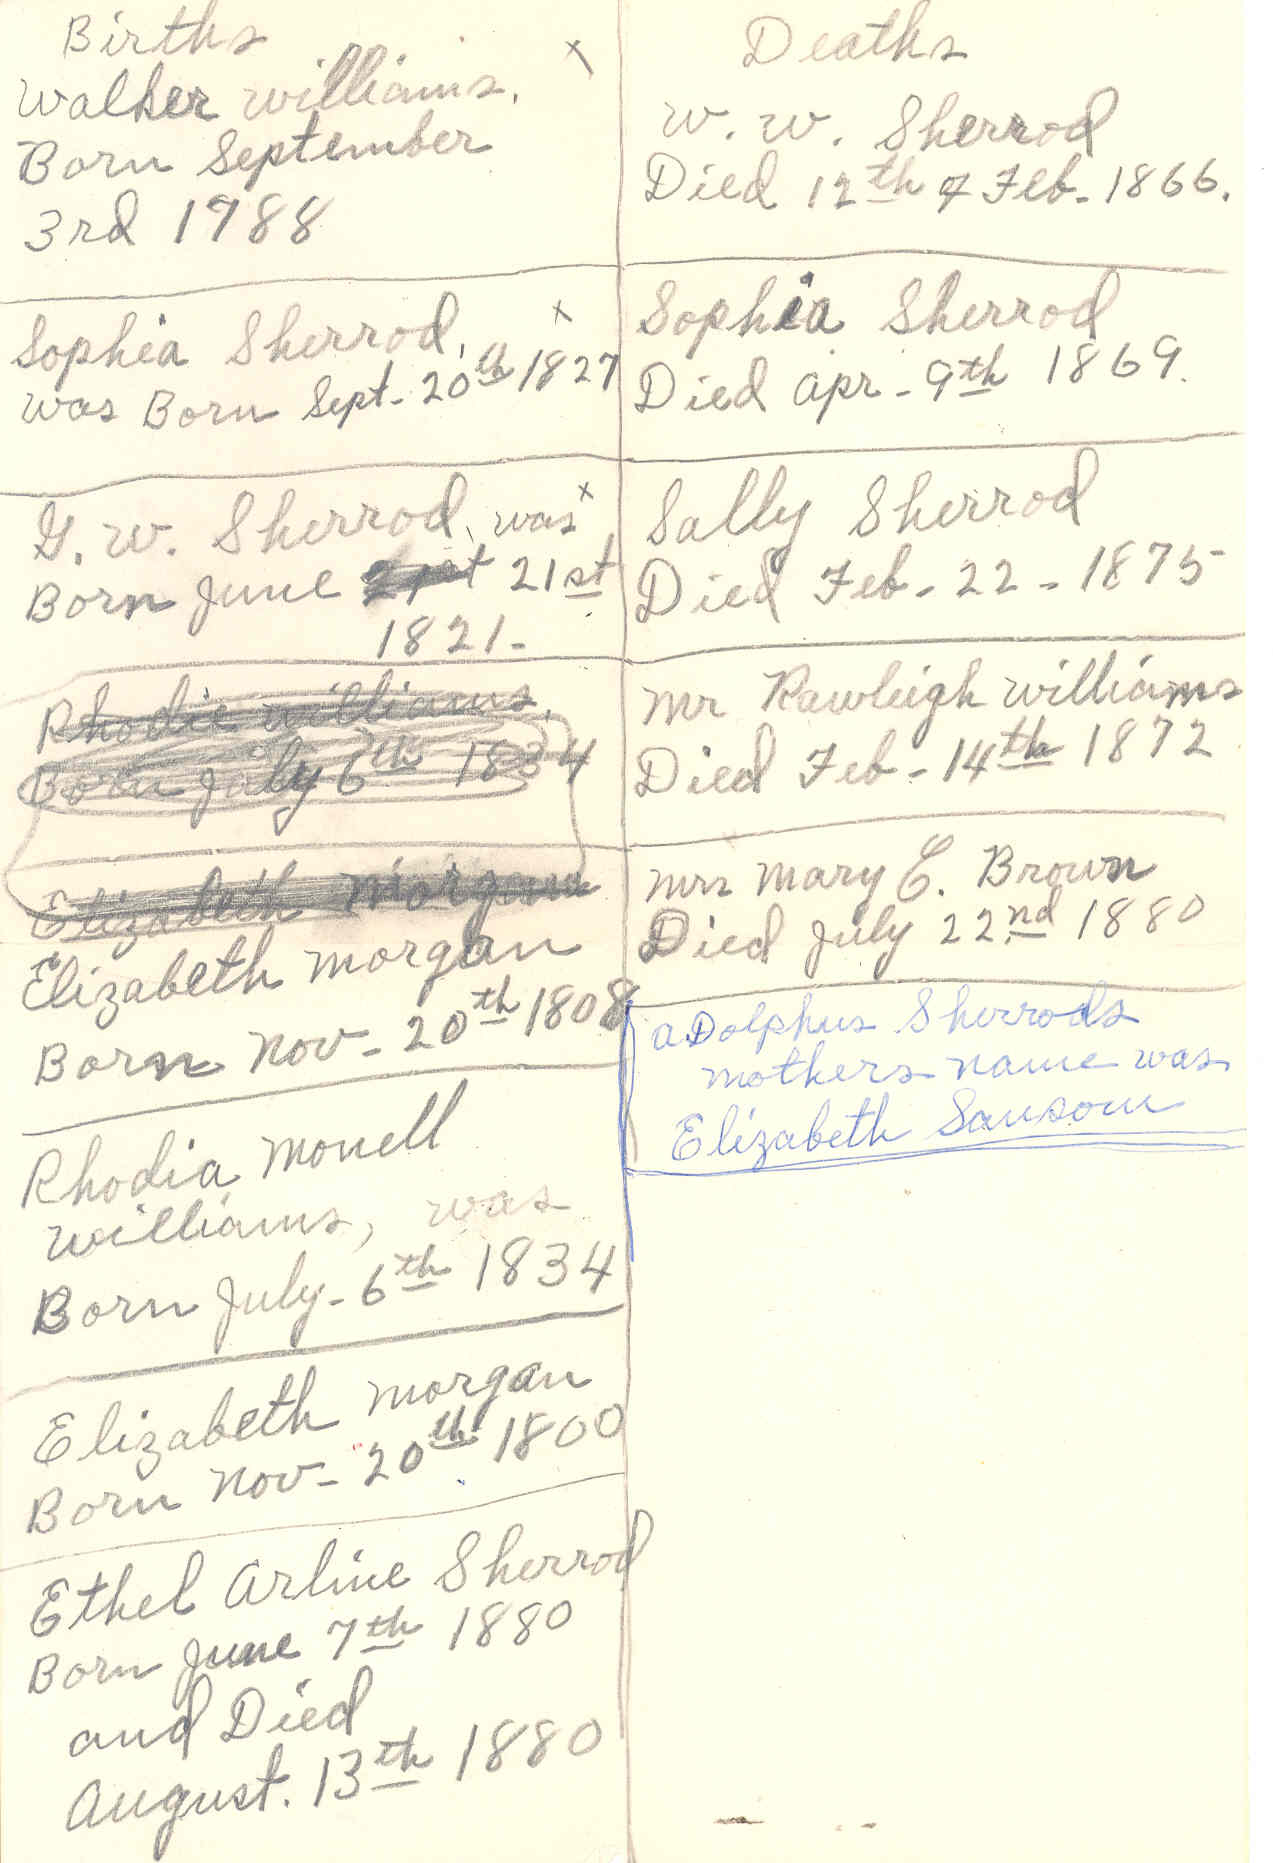 Births
Walker Williams.
Born September
3rd 1788
Sophia Sherrod,
was Born Sept- 20th 1827
G. W. Sherrod, was
Born June 21st 21st
1821-
Rhodie Williams,
Born July 6th 1834
Elizabeth Morgan
Elizabeth Morgan
Born Nov- 20th 1808
Rhodia Monell
Williams, was
Born July- 6th 1834
Elizabeth Morgan
Born Nov- 20th 1800
Ethel Arline Sherrod
Born June 7th 1880
and Died
August. 13th 1880
Deaths
W. W. Sherrod
Died 12th of Feb- 1866.
Sophia Sherrod
Died Apr- 9th 1869.
Sally Sherrod
Died Feb- 22- 1875
Mr Rawleigh Williams
Died Feb- 14th 1872
Mrs Mary E. Brown
Died July 22nd 1880
ADolphus Sherrods
mothers name was
Elizabeth Sansom